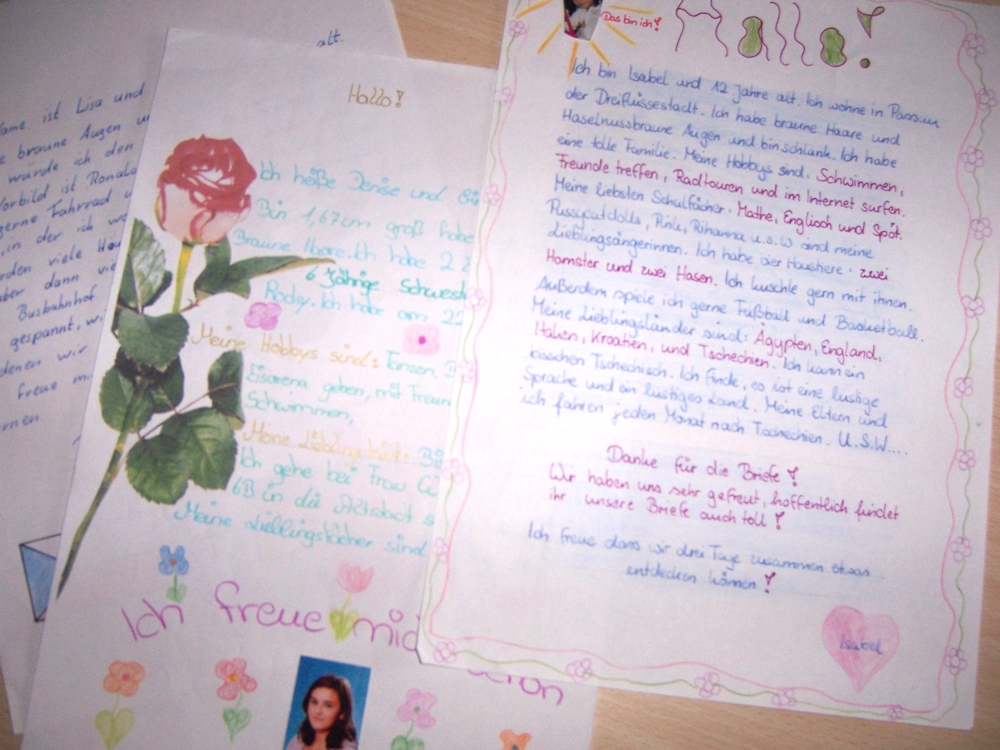 alt.
ame ist Lisa und
e braune Augen
würde ich den
Vorbild ist Ronald
gerne Fahrrad
in der ich
rden viele
aber dann vie
Busbahnhof
gespannt,
denen wir
freue
Hallo!
Ich heiße Denise und
Bin 1,67cm groß habe
Braune Haare. Ich habe 2
6 Jährige Schwest
Rocky. Ich habe am
Meine Hobbys sind: Tanzen,
Eisarena gehen, mit Freun
Schwimmen,
Meine
Ich gehe bei Frau
6B in die
Meine Lieblingsfächer sind
Ich freue mic
schon
Das bin ich!
Hallo!
Ich bin Isabel und 12 Jahre alt. Ich wohne in Passau
der Dreiflüssestadt. Ich habe braune Haare und
Haselnussbraune Augen und bin schlank. Ich habe
eine tolle Familie. Meine Hobbys sind: Schwimmen,
Freunde treffen, Radtouren und im Internet surfen.
Meine liebsten Schulfächer: Mathe, Englisch und Spot.
Pussycatdolls, Pink, Rihanna u.s.w sind meine
Lieblingsängerinnen. Ich habe vier Haustiere: zwei
Hamster und zwei Hasen. Ich kuschle gern mit ihnen.
Außerdem spiele ich gerne Fußball und Basketball.
Meine Lieblingsländer sind: Ägypten, England,
Italien, Kroatien, und Tschechien. Ich kann ein
bisschen Tschechisch. Ich finde, es ist eine lustige
Sprache und ein lustiges Land. Meine Eltern und
ich fahren jeden Monat nach Tschechien. U.S.W....
Danke für die Briefe!
Wir haben uns sehr gefreut, hoffentlich findet
ihr unsere Briefe auch toll!
Ich freue dass wir drei Tage zusammen etwas
entdecken können!
Isabel